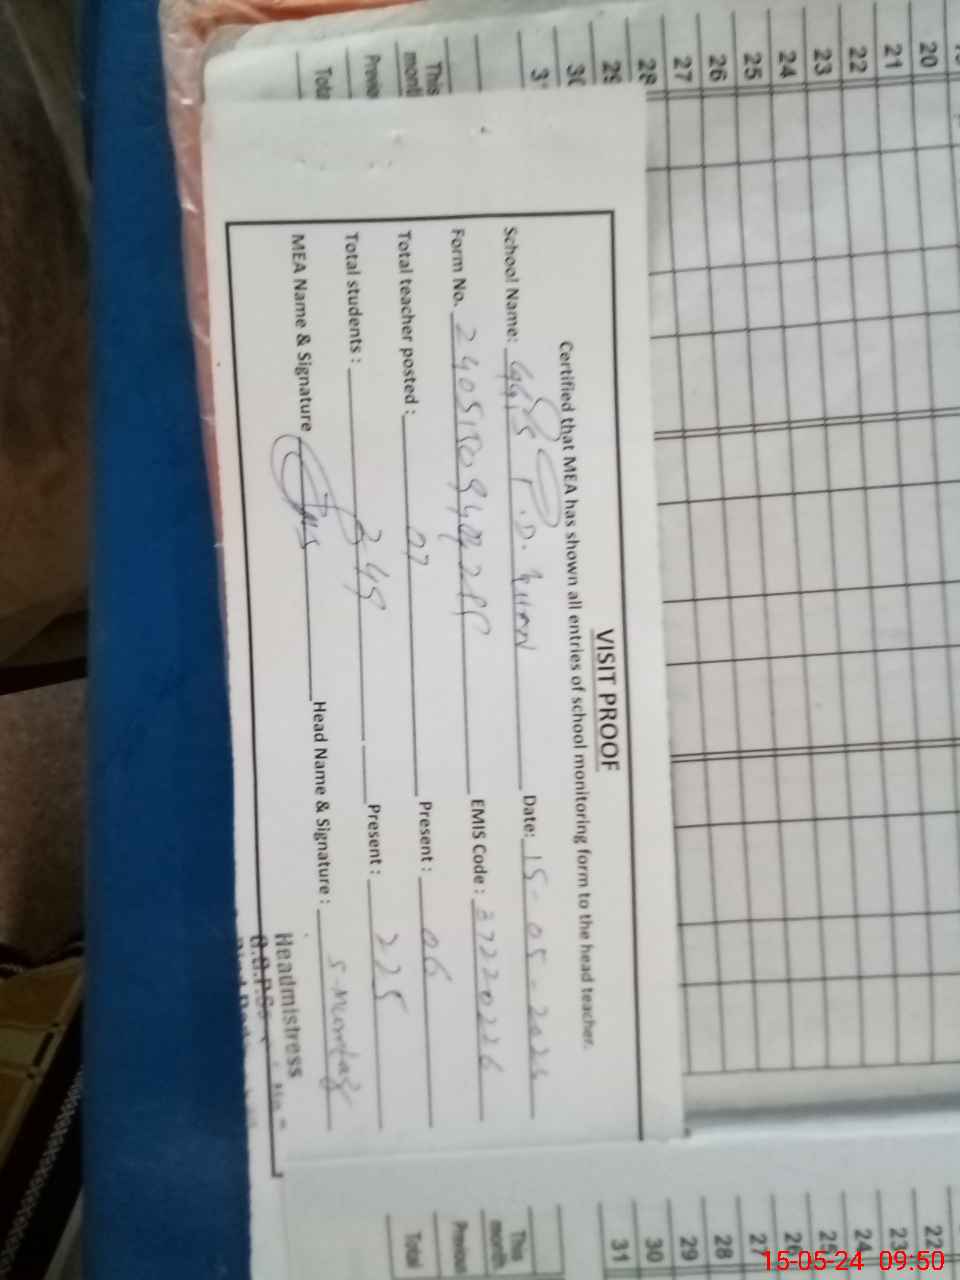 VISIT PROOF
Certified that MEA has shown all entries of school monitoring form to the head teacher.
School Name: GGPS P.D. Date: 15-05-2024
Form No. EMIS Code : 37220226
Total teacher posted : 07 Present : 06
Total students : 249 Present : 225
MEA Name & Signature Head Name & Signature :
Headmistress
20
21
22
23
24
25
26
27
28
29
30
31
This month
Total
22
23
24
25
26
27
28
29
30
31
This month
Previous
Total
15-05-24 09:50